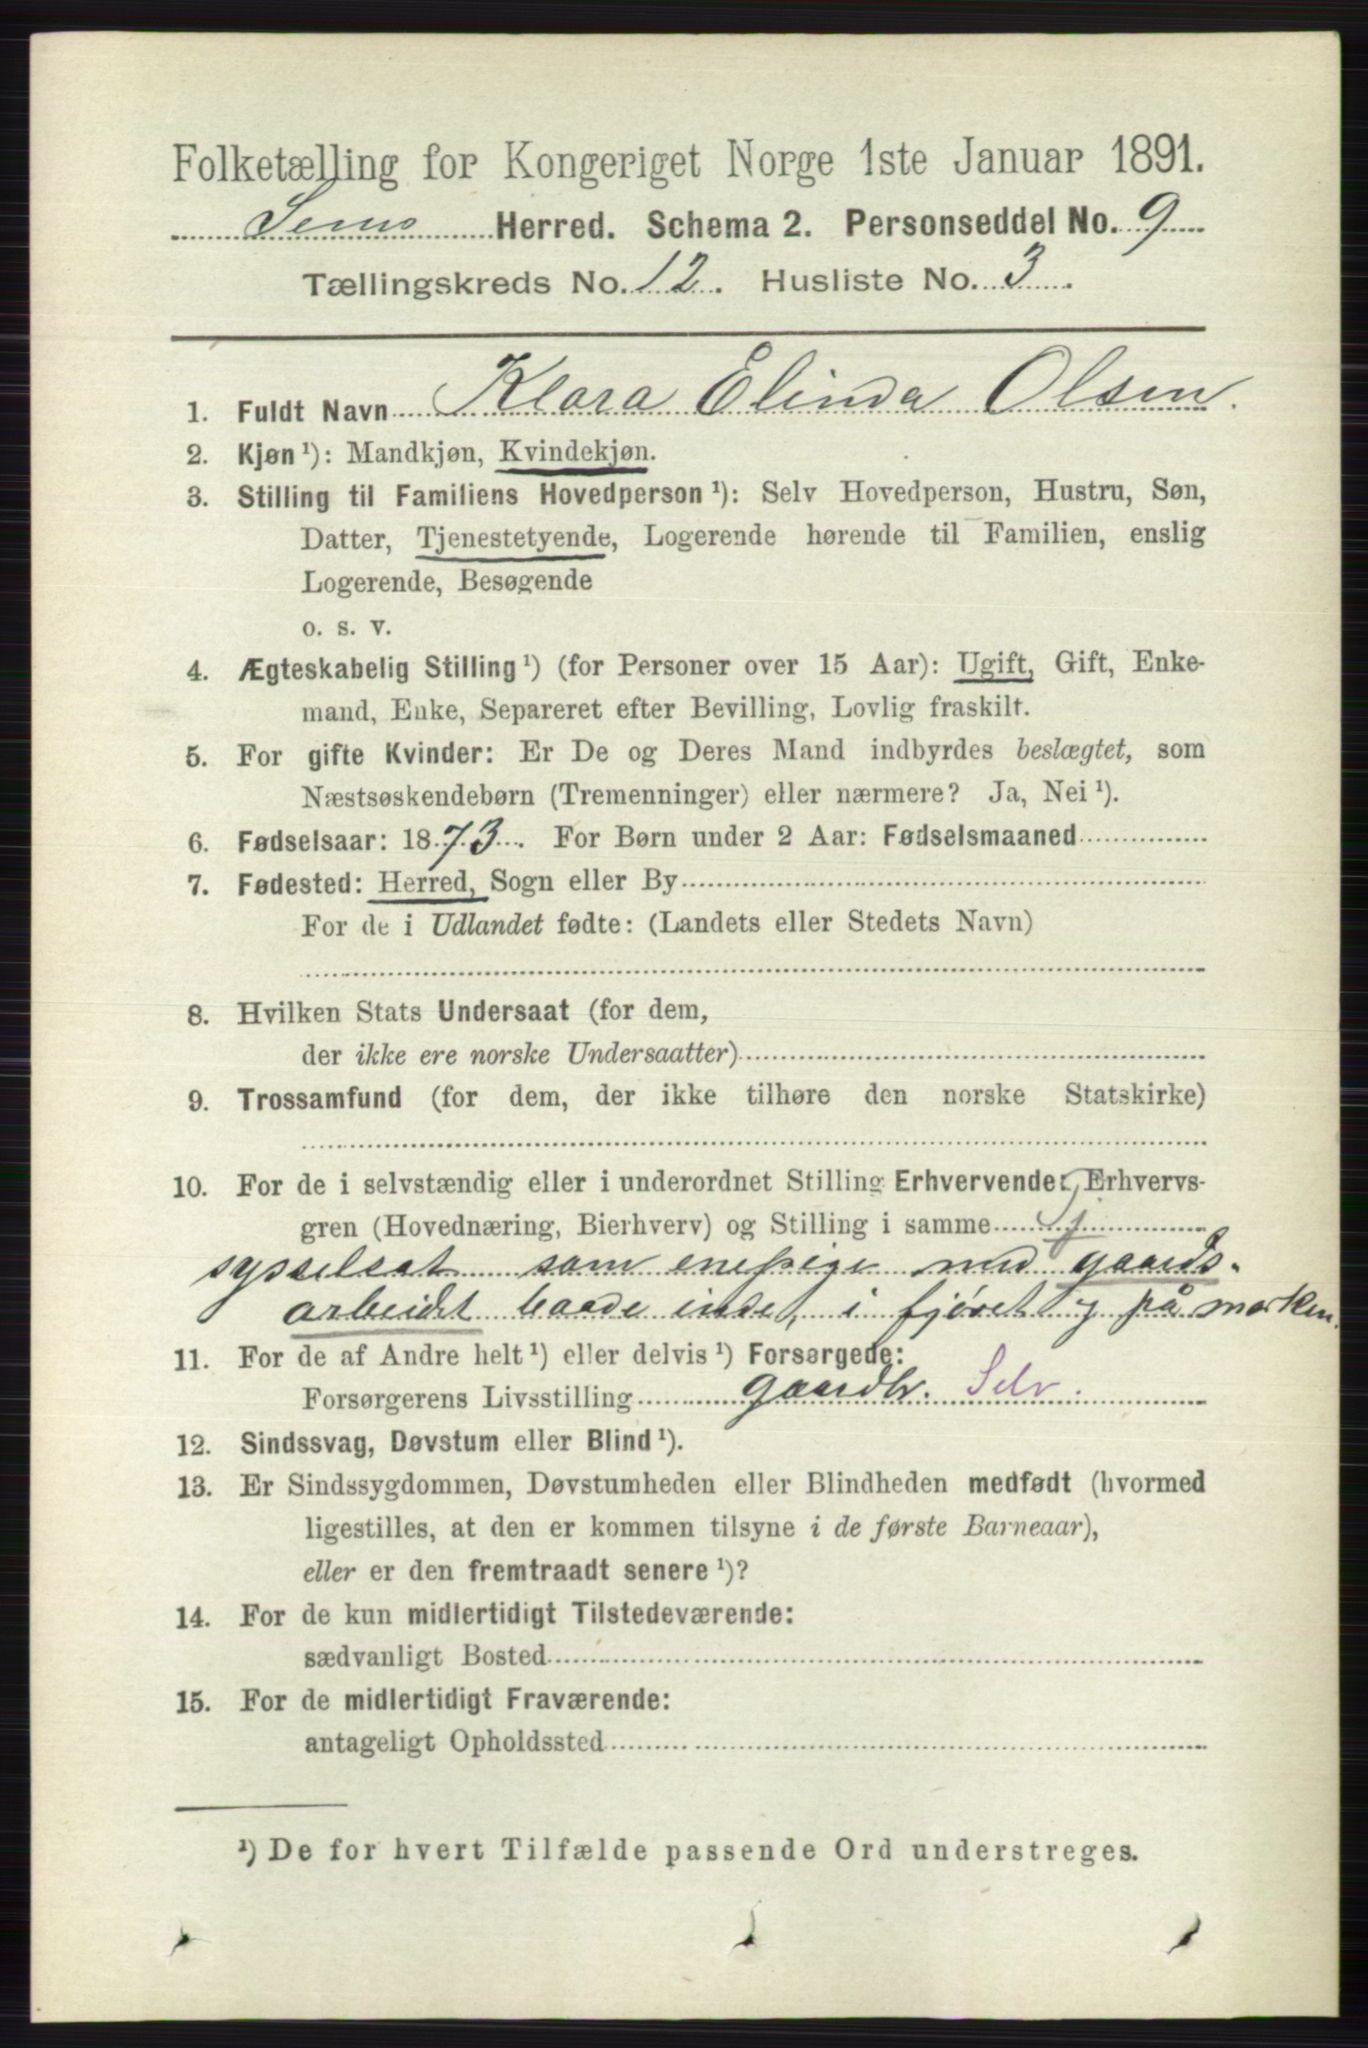 Folketælling for Kongeriget Norge 1ste Januar 1891.
Sems Herred. Schema 2. Personseddel No. 9
Tællingskreds No. 12. Husliste No. 3.
1. Fuldt Navn Klara Elinda Olsen.
2. Kjøn ¹): Mandkjøn, Kvindekjøn.
3. Stilling til Familiens Hovedperson ¹): Selv Hovedperson, Hustru, Søn,
Datter, Tjenestetyende, Logerende hørende til Familien, enslig
Logerende, Besøgende
o. s. v.
4. Ægteskabelig Stilling ¹) (for Personer over 15 Aar): Ugift, Gift, Enke-
mand, Enke, Separeret efter Bevilling, Lovlig fraskilt.
5. For gifte Kvinder: Er De og Deres Mand indbyrdes beslægtet, som
Næstsøskendebørn (Tremenninger) eller nærmere? Ja, Nei ¹).
6. Fødselsaar: 1873. For Børn under 2 Aar: Fødselsmaaned
7. Fødested: Herred, Sogn eller By
For de i Udlandet fødte: (Landets eller Stedets Navn)
8. Hvilken Stats Undersaat (for dem,
der ikke ere norske Undersaatter)
9. Trossamfund (for dem, der ikke tilhøre den norske Statskirke)
10. For de i selvstændig eller i underordnet Stilling Erhvervende: Erhvervs-
gren (Hovednæring, Bierhverv) og Stilling i samme Tj
sysselsat som enepige med gaards-
arbeidet baade inde, i fjøset og på marken.
11. For de af Andre helt ¹) eller delvis ¹) Forsørgede:
Forsørgerens Livsstilling gaardbr. Selv.
12. Sindssvag, Døvstum eller Blind ¹).
13. Er Sindssygdommen, Døvstumheden eller Blindheden medfødt (hvormed
ligestilles, at den er kommen tilsyne i de første Barneaar),
eller er den fremtraadt senere ¹)?
14. For de kun midlertidigt Tilstedeværende:
sædvanligt Bosted
15. For de midlertidigt Fraværende:
antageligt Opholdssted
¹) De for hvert Tilfælde passende Ord understreges.